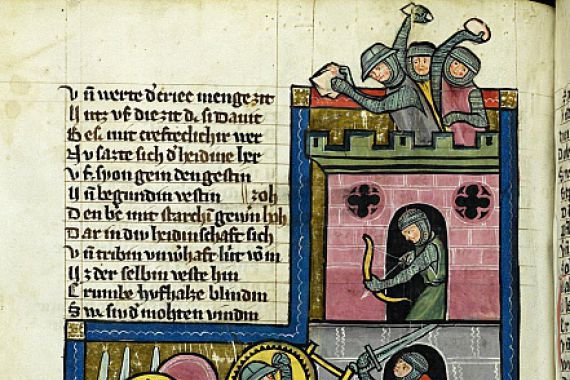 Vñ werte d'criec mengezit
Untz vf die zit dc si dauit
Bes, mit crefteclichir wer
Nv sazte sich d' heidine her
Vf syon gein den gestin
Uñ begundin vestin zoh
Den be mit starch' gewin hoh
Dar in div heidinschaft sich
Vñ tribin vnw'haft lute von im
Uz der selbin veste hin
Crumbe hufhalze blindin
Swe si vnd' mohten vindin